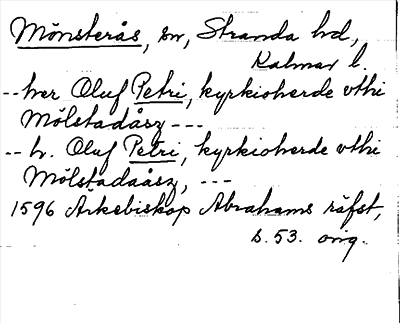 Mönsterås, sn, Stranda hd,
Kalmar l.
-- her Oluf Petri, kyrkioherde vthi
Mölstadåsz ---
-- h. Oluf Petri, kyrkioherde vthi
Mölstadaåsz, ---
1596 Ärkebiskop Abrahams räfst,
s. 53. orig.